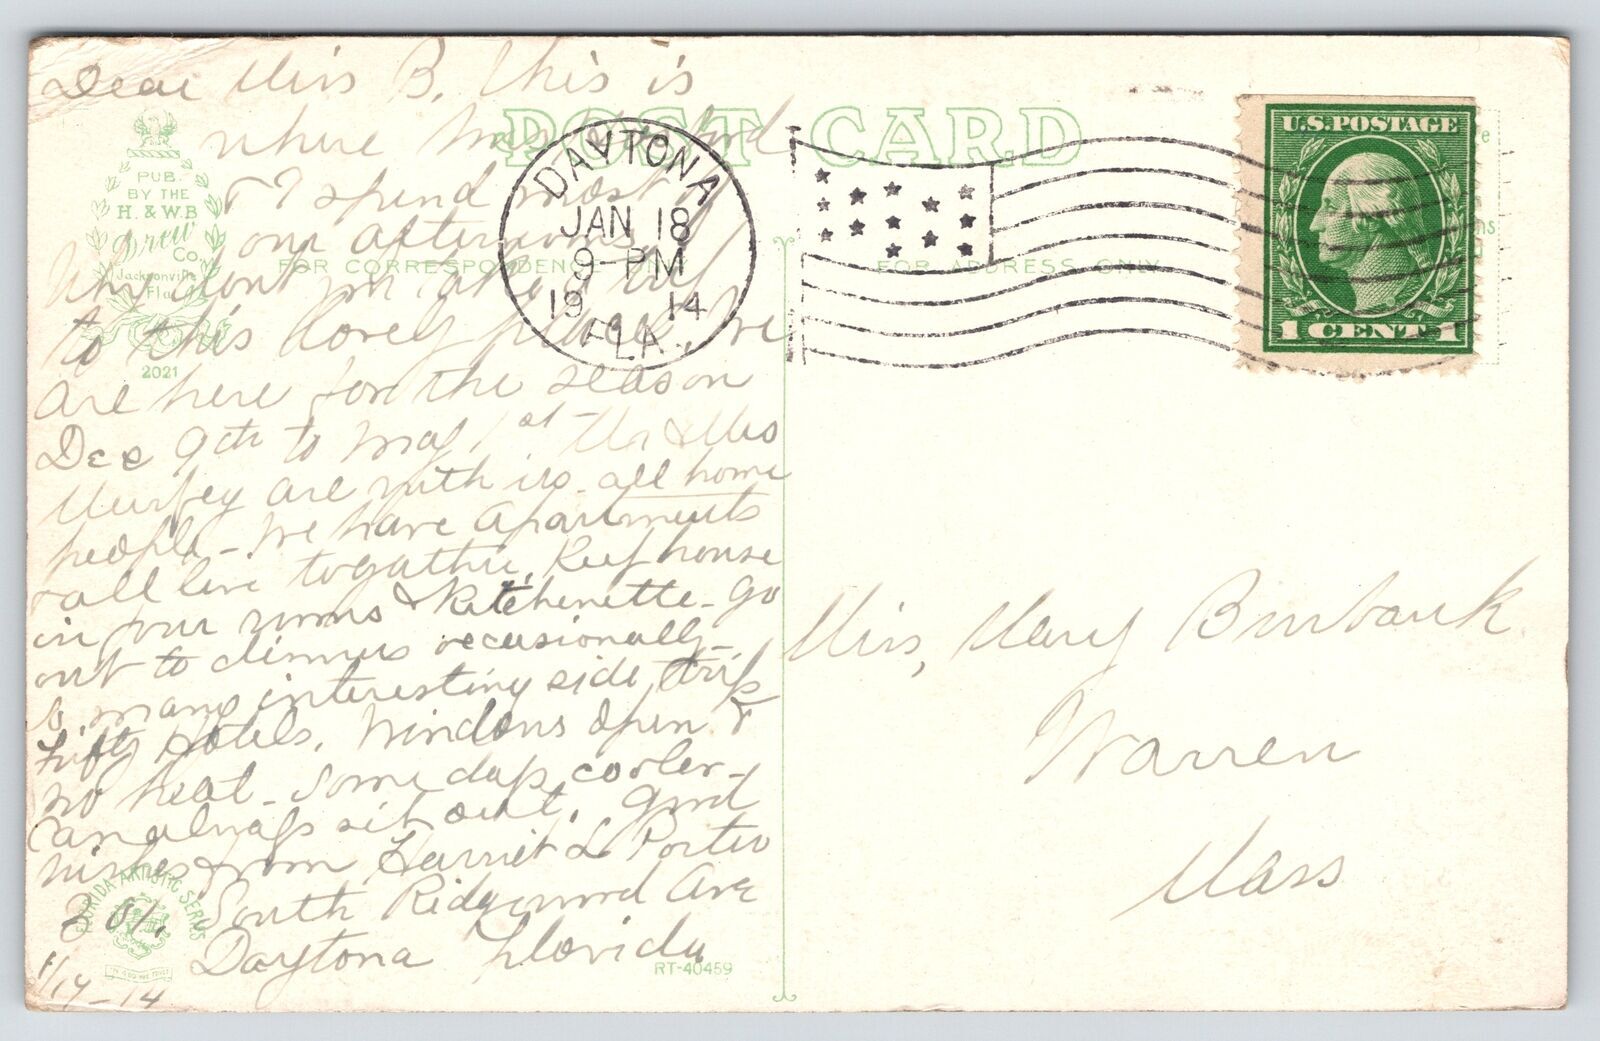 Dear Mrs B. This is
where Mrs
& I spend most of
our afternoons
Why dont you take trip
to this lovely place, We
are here for the season
Dec 9th to May 1st - Mr & Mrs
Murfey are with us - all home
people - We have apartments
& all live togather, Keep house
in four rooms & Kitchenette - go
out to dinners occasionally -
so many interesting side trips
Fifty Hotels. Windows open &
no heat - some days cooler -
can always sit out. Good
wishes from Harriet L Porter
301. South Ridgewood Ave
Daytona Florida
1/17-14
POST CARD
PUB.
BY THE
H. & W.B
Drew
Co.
Jacksonville
Fla.
2021
FOR CORRESPONDENCE ONLY
FOR ADDRESS ONLY
FLORIDA ARTISTIC SERIES
RT-40459
DAYTONA
JAN 18
9-PM
1914
FLA.
U.S. POSTAGE
1 CENT 1
Mrs, Mary Burbank
Warren
Mass